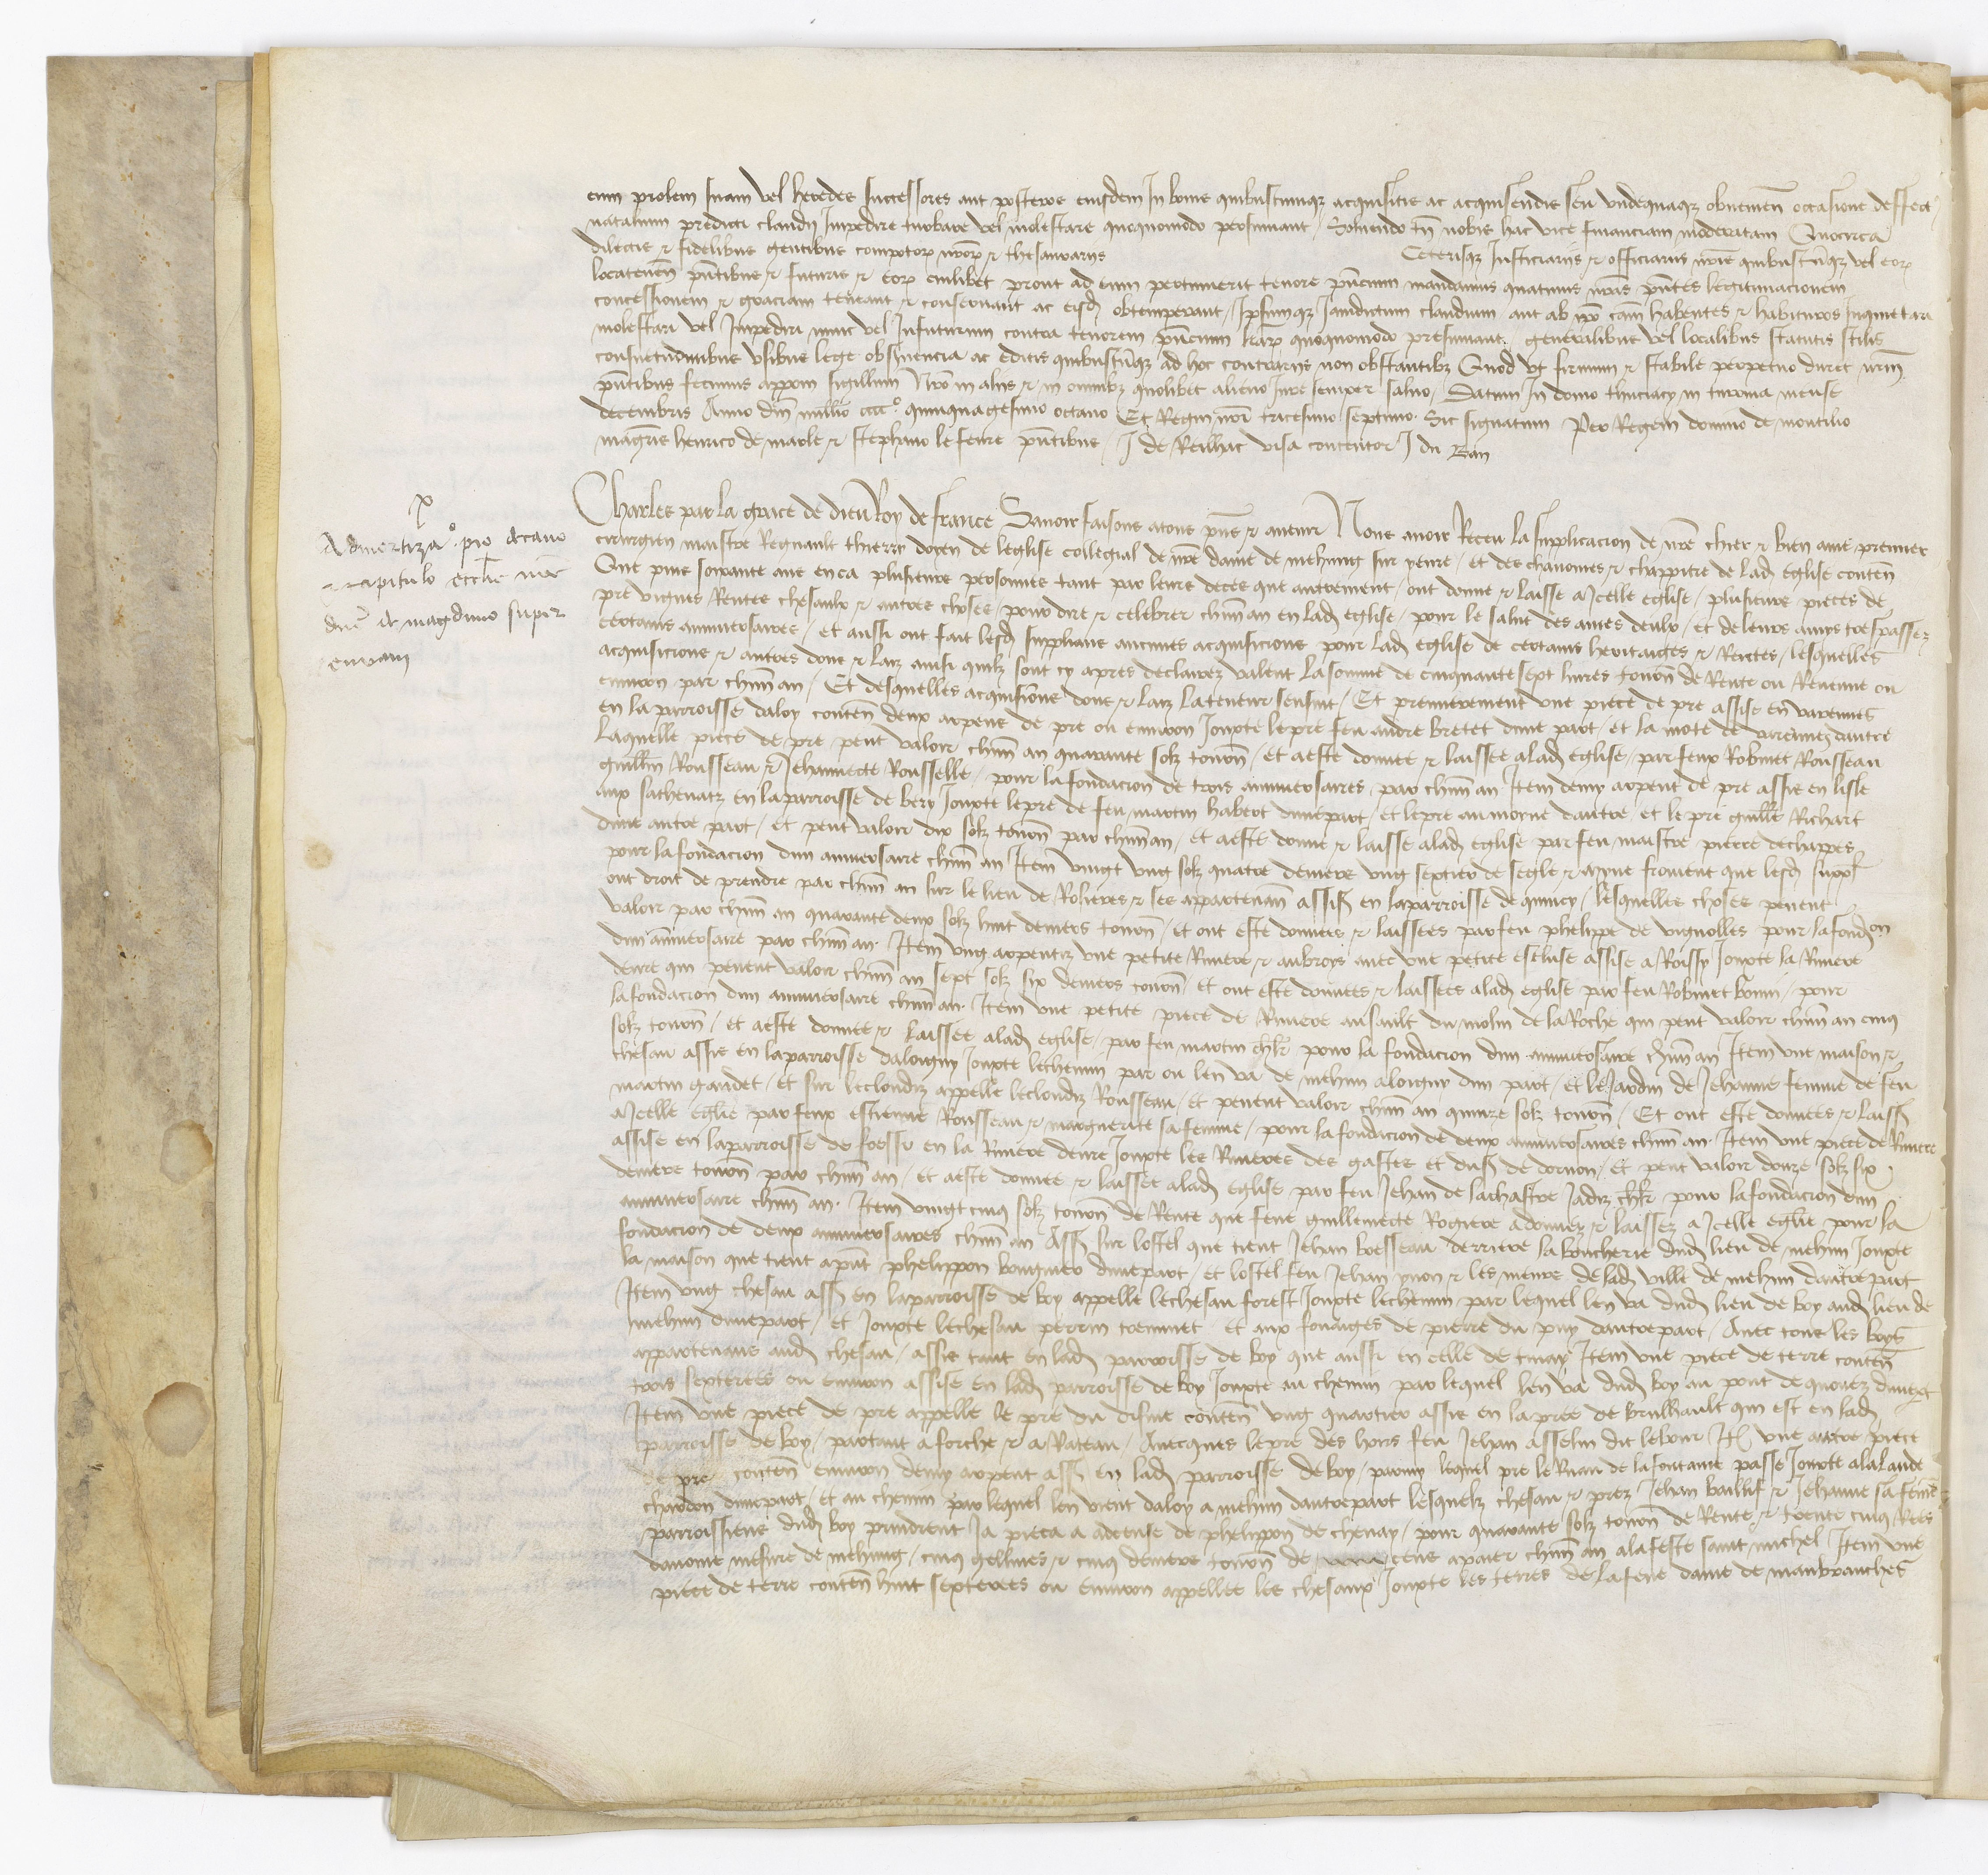 eum prolem suam vel heredes successores aut posteros eiusdem In bonis quibuscumque acquisitis ac acquirendis seu undequaque obvenien occasione deffect
natalium predicti claudij Impedire turbare vel molestare quoquomodo presumant / Solvendo tn nobis hac vice financiam moderatam Quocirca
dilectis et fidelibus gentibus compotorum nrorum et thesaurariis Ceterisque Justiciariis et officiariis nris quibuscumque vel eorum
locatenen pntibus et futuris et eorum cuilibet prout ad eum pertinuerit tenore pncium mandamus quatinus nras pntes legitimacionem
concessionem et graciam teneant et conservant ac eisd obtemperant / Ipsumque Jamdictum claudium aut ab ipso cam habentes et habituros inquietari
molestari vel Impediri nunc vel Infuturum contra tenorem pncium lrarum quoquomodo presumant. generalibus vel localibus statutis stilis
consuetudinibus usibus lege observencia ac editis quibuscumque ad hoc contrariis non obstantibus Quod ut firmum et stabile perpetuo duret nrm
pntibus fecimus apponi sigillum Nro in aliis et in omnibus quolibet alieno Jure semper salvo / Datum In domo thuciacy in turonia mense
decembris Anno dni millmo cccc.º quinquagesimo octavo Et Regni nri tricesimo septimo. Sic signatum Per Regem domino de montilio
magris henrico de marle et stephano le fevre pntibus / J de Reilhac visa contentor J du Ban
Charles par la grace de dieu Roy de france Savoir faisons atous pns et avenir Nous avoir Receu la supplicacion de nre chier et bien ame premier
cirurgien maistre Regnault thierry doyen de leglise collegial de nre dame de mehung sur yevre / et des chanoines et chappitre de lad Eglise conten
Que puis soixante ans enca plusieurs personnes tant par leurs deces que autrement / ont donne et laisse a Icelle eglise / plusieurs pieces de
pre vignes Rentes chesaulx et autres choses / pour dire et celebrer chun an en lad eglise / pour le salut des ames deulx / et de leurs amys trespassez
certains anniversaires / et aussi ont fait lesd supplians aucunes acquisicions pour lad eglise de certains heritaiges et Rentes / lesquelles
acquisicions et autres dons et laiz ainsi quilz sont cy apres declairez valent la somme de cinquantesept livres tourn de Rente ou Revenue ou
environ par chun an / Et desquelles acquisicions dons et laiz lateneur sensuit / Et premierement une piece de pre assise en varennes
en la parroisse daloy conten deux arpens de pre ou environ Jouxte lepre feu andre bretet dune part / et la mote de varennes dautre
Laquelle piece de pre peut valoir chun an quarante solz tourn / et aeste donnee et laissee alad eglise / par feux Robinet Rousseau
guillm Rousseau et Jehannecte Rousselle / pour la fondacion de trois anniversaires / par chun an Item demy arpent de pre assis en lisle
aux sathenatz en laparroisse de bery Jouxte lepre de feu martin habert dunepart / et lepre au morne dautre et le pre guille Richart
dune autre part / et peut valoir dix solz tourn par chun an / et aeste donne et laisse alad eglise par feu maistre pierre dechappes
pour la fondacion dun anniversaire chun an Item vingt ung solz quatre deniers ung sextier de segle et myne froment que lesd suppl
ont droit de prendre par chun an sur le lieu de Rosieres et ses appartenan assis en laparroisse de quincy / lesquelles choses pevent
valoir par chun an quarante deux solz huit deniers tourn / et ont este donnees et laissees par feu phelippe de vignolles pour lafondon
dun anniversaire par chun an. Item ung arpentz une petite Riviere et aubroys avec une petite escluse assise a Roissy Jouxte la Riviere
deure qui pevent valoir chun an sept solz six deniers tourn / et ont este donnees et laissees alad eglise par feu Robinet bonin / pour
lafondacion dun anniversaire chun an. Item une petite piece de Riviere ausault du molin de laRoche qui peut valoir chun an cinq
solz tourn / et aeste donnee et laissee alad eglise / par feu martin chlr pour la fondacion dun anniversaire chun an Item une maison et
chesau assis en laparroisse daloigny Jouxte lechemin par ou len va de mehun aloigny dun part / et le Jardin de Jehanne femme de feu
martin gaudet / et sur lecloudiz appelle lecloudiz Rousseau / et pevent valoir chun an quinze solz tourn / Et ont este donnees et laiss
aIcelle eglise par feux estienne Rousseau et marguerite sa femme / pour la fondacion de deux anniversaires chun an. Item une piece de Riviere
assise en laparroisse de foessy en la Riviere deure Jouxte les Rivieres des gastes et dus de dornon / et peut valoir douze solz six
deniers tourn par chun an / et aeste donnee et laissee alad eglise par feu Jehan de lachastre Jadiz chlr pour lafondacion dun
anniversaire chun an. Item vingtcinq solz tourn de Rente que feue guillemecte Rogiere a donnez et laissez a Icelle eglise pour la
fondacion de deux anniversaires chun an Ass sur lostel que tient Jehan boesseau derriere la boucherie dud lieu de mehun Jouxte
la maison que tient apnt phelippon bougnier dunepart / et lostel feu Jehan ynon et les meurs delad ville de mehun dautrepart
Item ung chesau ass en laparroisse de boy appelle lechesau forest Jouxte lechemin par lequel len va dud lieu de boy aud lieu de
mehun dunepart / et Jouxte lechesau perrin tremmet et aux fouaiges de pierre du puy dautrepart / Avec tous les boys
appartenans aud chesau / assis tant en lad parroisse de boy que aussi en celle de tinay Item une piece de terre conten
trois sexterees ou environ assise en lad parroisse de boy Jouxte au chemin par lequel len va dud boy au pont de quonez dunept
Item une piece de pre appelle le pre du disme conten ung quartier assis en lapree de brulhault qui est en lad
parroisse de boy / partant a forche et a Rateau / Avecques lepre des hoirs feu Jehan asselin dit lebour Itm une autre piece
de pre conten environ demy arpent ass en lad parroisse de boy / parmy lequel pre le Ruau de la fontaine passe Jouxte ala lande
chardon dunepart / et au chemin par lequel len vient daloy a mehun dautrepart lesquelz chesau et prez Jehan baillif et Jehanne sa femme
parroissiens dud boy prindrent Ja pieca a adcense de phelippon de chenay / pour quarante solz tourn de Rente et trente cinq Rees
davoine mesure de mehung / cinq gellines et cinq deniers tourn de cens apaier chun an alafeste saint michel Item une
piece de terre conten huit sexterees ou environ appellee les chesaux Jouxte les terres de lafeue dame de mautranches
Admortiza.º pro decano
et capitulo ecclie nre
dne de magduno super
euvram